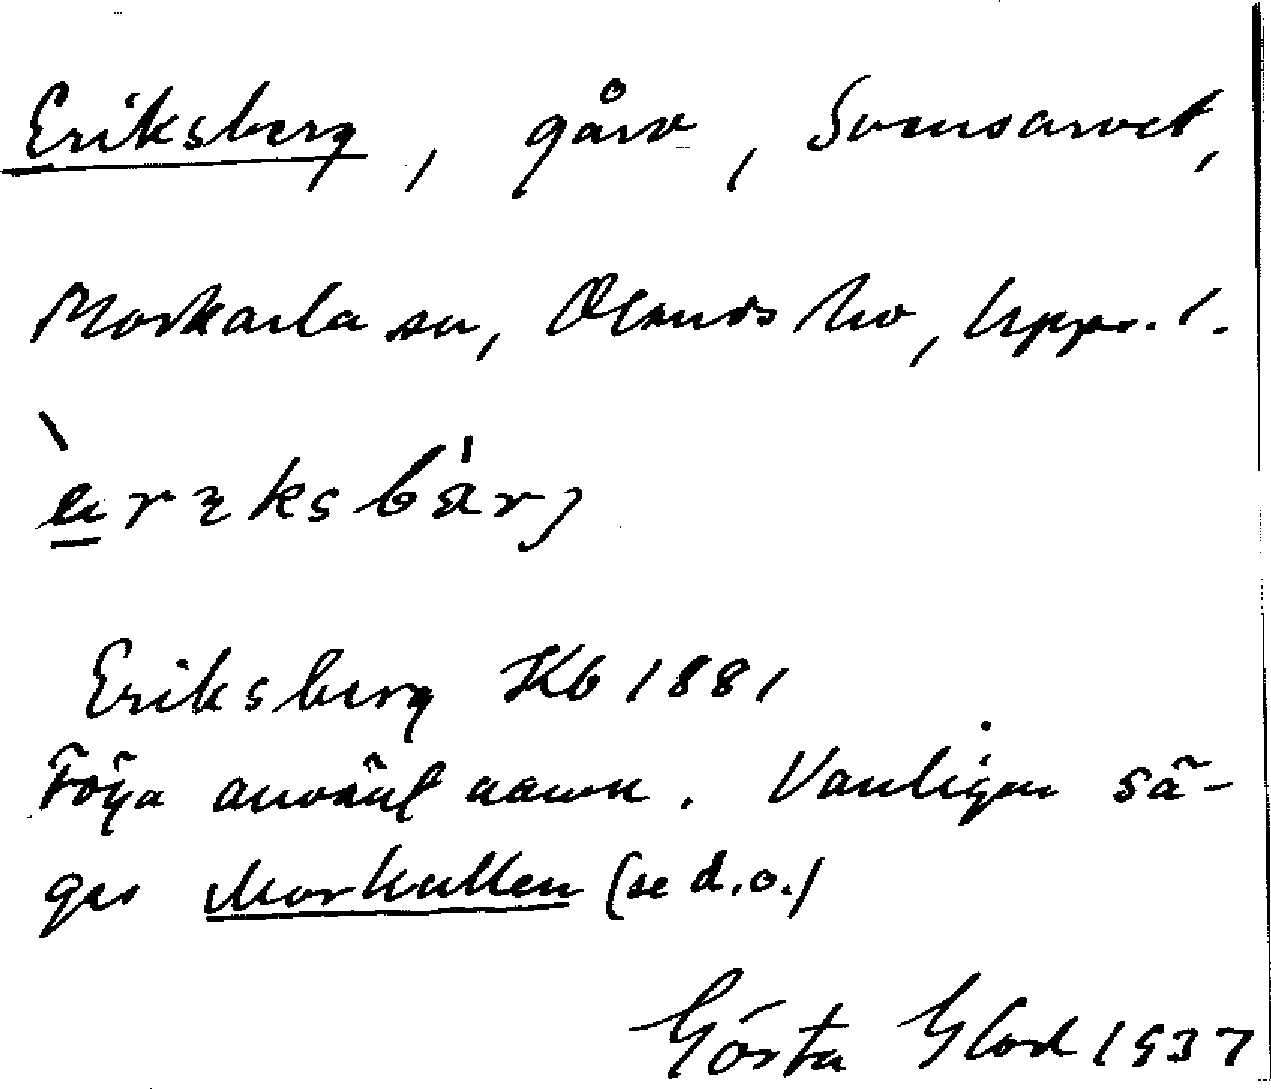 Eriksberg, gård, Svensarvet,
Morkarla sn, Olands hd, Upps. l.
Eriksberg Kb 1881
Föga använt namn. Vanligen sä-
ges Morkullen (se d.o.)
Gösta Glod 1937